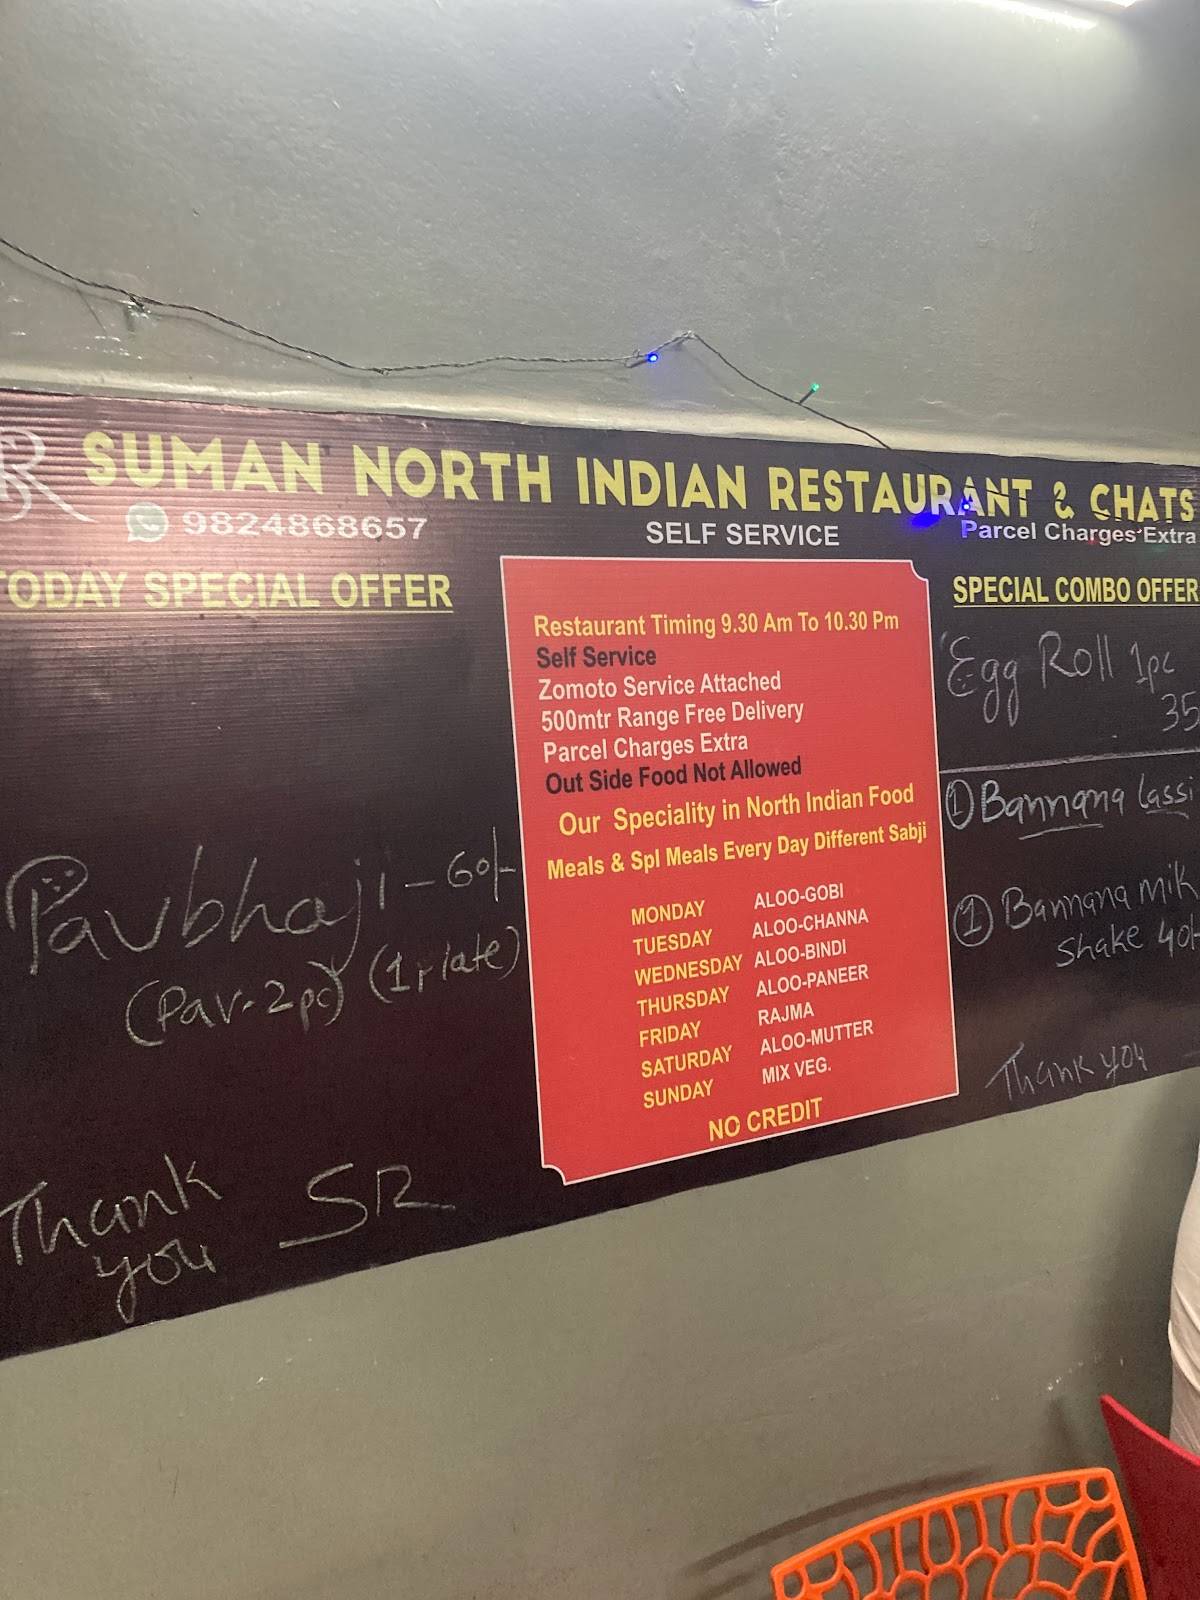 SUMAN NORTH INDIAN RESTAURANT & CHATS
9824868657
SELF SERVICE
Parcel Charges Extra
TODAY SPECIAL OFFER
Pavbhaji - 60/-
(Pav-2pc) (1plate)
Thank
you
SR
Restaurant Timing 9.30 Am To 10.30 Pm
Self Service
Zomoto Service Attached
500mtr Range Free Delivery
Parcel Charges Extra
Out Side Food Not Allowed
Our Speciality in North Indian Food
Meals & Spl Meals Every Day Different Sabji
MONDAY ALOO-GOBI
TUESDAY ALOO-CHANNA
WEDNESDAY ALOO-BINDI
THURSDAY ALOO-PANEER
FRIDAY RAJMA
SATURDAY ALOO-MUTTER
SUNDAY MIX VEG.
NO CREDIT
SPECIAL COMBO OFFER
Egg Roll 1pc
35
① Bannana lassi
① Bannana mik
Shake 40/-
Thank you